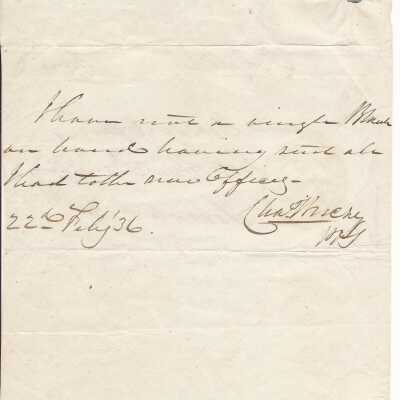 I have not a single Blank
on hand having sent all
I had to the new Officer -
22d Feby '36.
Chas